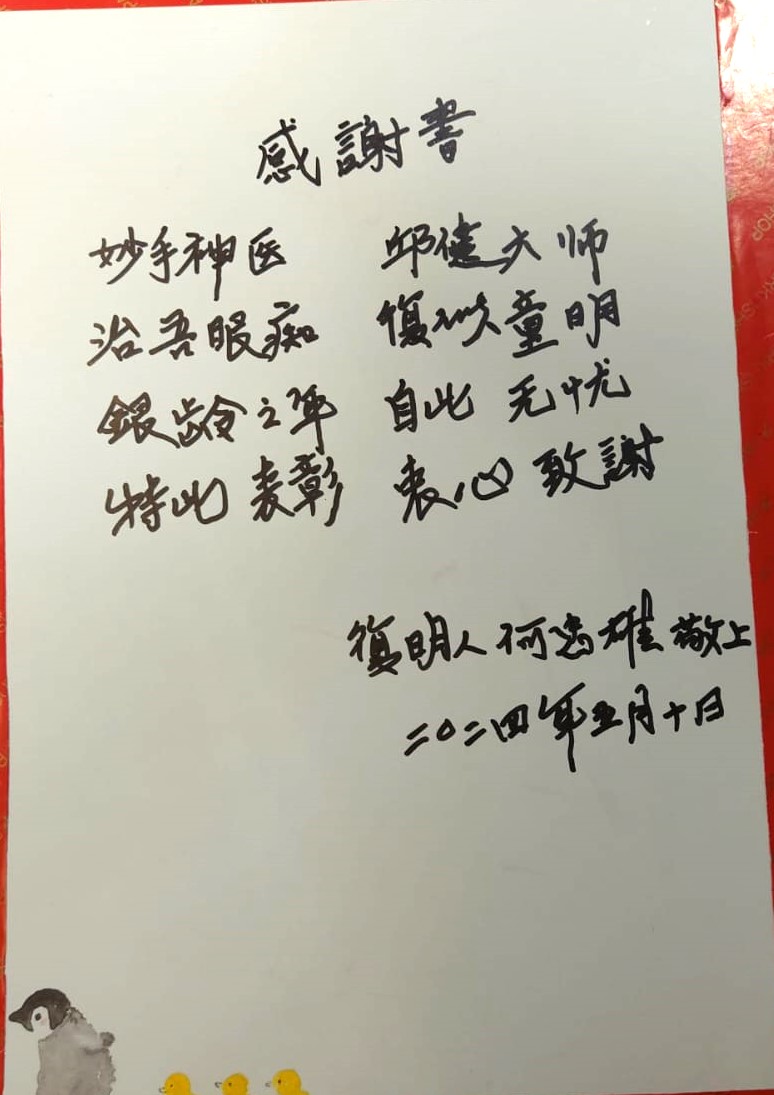 感謝書
妙手神医 邱健大师
治吾眼痴 復以童明
銀齡之年 自此无忧
特此表彰 衷心致謝
復明人何志雄敬上
二〇二四年五月十日